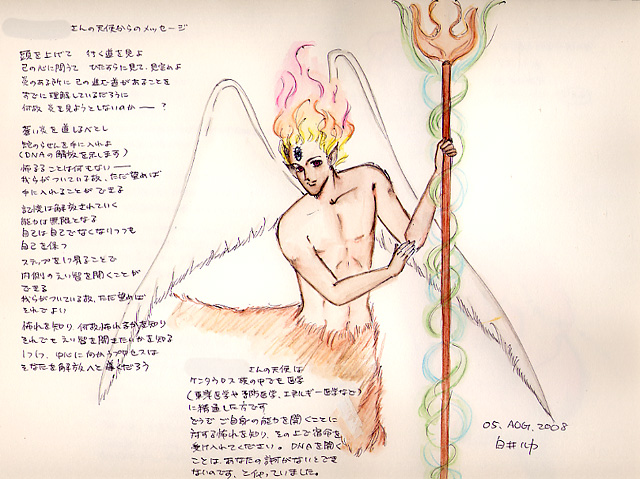 さんの天使からのメッセージ
頭を上げて 行く道を見よ
己の心に問うて ひたすらに見て、見定めよ
炎のある所に 己の進む道があることを
すでに理解しているだろうに
何故 炎を見ようとしないのか ── ?
蒼い炎を道しるべとし
蛇のらせんを手に入れよ
(DNAの解放を示します)
怖るることは何もない ──
我らがついている故、ただ望めば
手に入れることが できる
記憶は解放されていく
能力は無限となる
自己は自己でなくなりつつも
自己を保つ
ステップを1つ昇ることで
内側のえい智を開くことが
できる
我らがついている故、ただ望めば
それでよい
怖れを知り、何故怖れるかを知り
それでも えい智を開きたいかを知る
1つ1つ、中心に向かうプロセスは
そなたを解放へと導くだろう
さんの天使は
ケンタウロス族の中でも 医学
(東洋医学や予防医学、エネルギー医学など)
に精通した方です
どうぞ ご自身の能力を開くことに
対する怖れを知り、その上で宿命を
受け入れてください。 DNAを開く
ことは、あなたの許可がないとでき
ないのです、と仰っていました。
05. AUG. 2008
白井